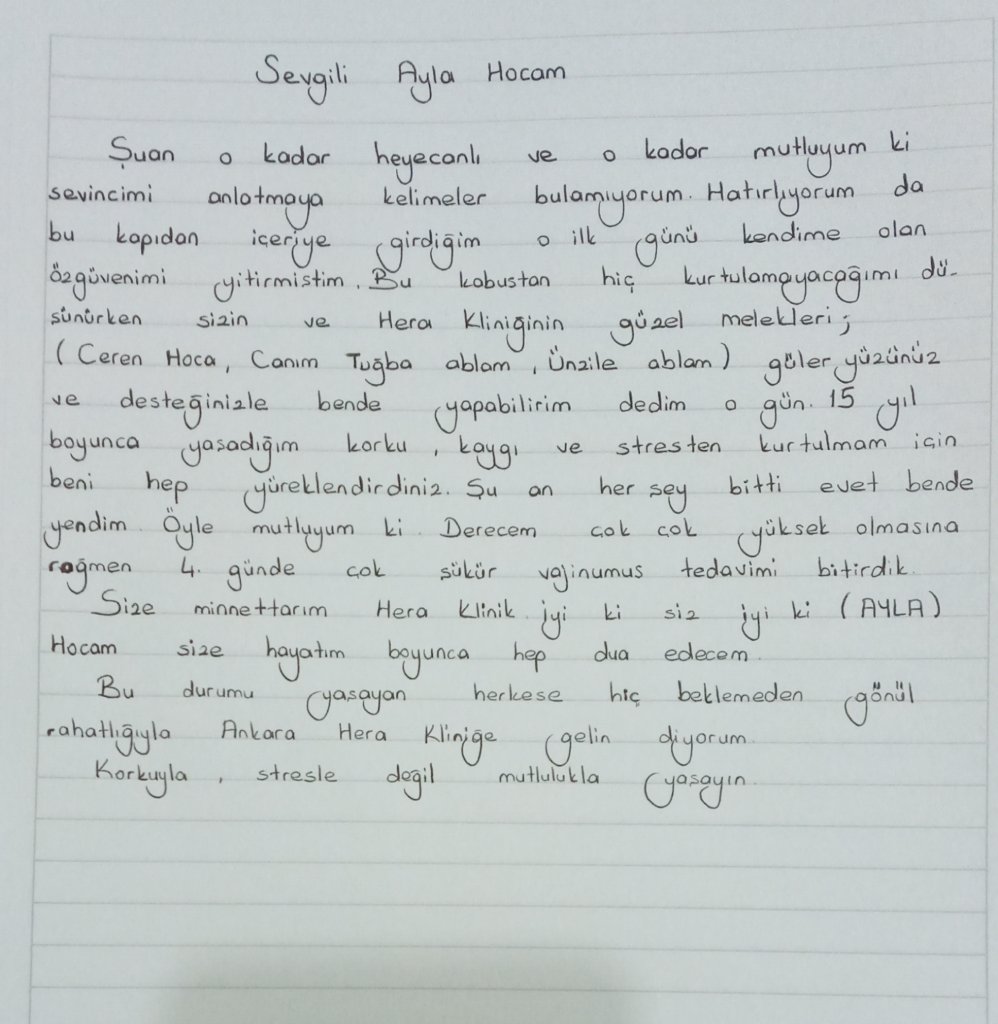 Sevgili Ayla Hocam
Şuan o kadar heyecanlı ve o kadar mutluyum ki
sevincimi anlatmaya kelimeler bulamıyorum. Hatırlıyorum da
bu kapıdan içeriye girdiğim o ilk günü kendime olan
özgüvenimi yitirmistim. Bu kabustan hiç kurtulamayacağımı dü-
sünürken sizin ve Hera Kliniğinin güzel melekleri;
(Ceren Hoca, Canım Tuğba ablam, Ünzile ablam) güler yüzünüz
ve desteğinizle bende yapabilirim dedim o gün. 15 yıl
boyunca yasadığım korku, kaygı ve stresten kurtulmam için
beni hep yüreklendirdiniz. Şu an her sey bitti evet bende
yendim. Öyle mutluyum ki. Derecem cok cok yüksek olmasına
rağmen 4. günde cok sükür vajinumus tedavimi bitirdik.
Size minnettarım Hera Klinik iyi ki siz iyi ki (AYLA)
Hocam size hayatım boyunca hep dua edecem.
Bu durumu yasayan herkese hiç beklemeden gönül
rahatlığıyla Ankara Hera Kliniğe gelin diyorum.
Korkuyla, stresle değil mutlulukla yasayın.